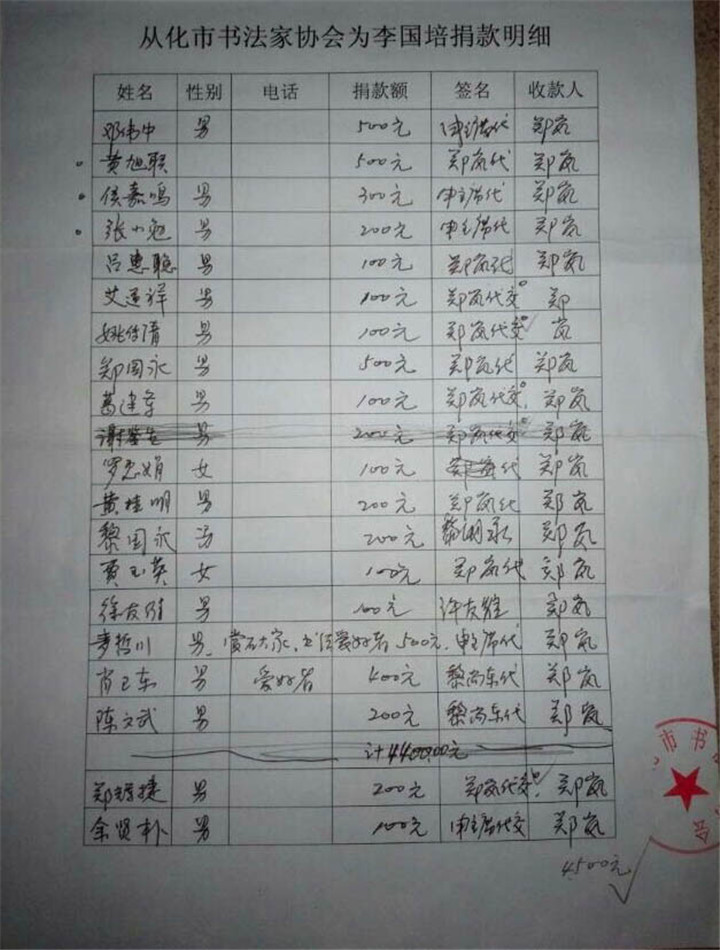 从化市书法家协会为李国培捐款明细
姓名 性别 电话 捐款额 签名 收款人
邓伟中 男 500元 申主席代 郑岚
黄旭联 500元 郑岚代 郑岚
侯嘉鸣 男 300元 申主席代 郑岚
张小勉 男 200元 申主席代 郑岚
吕惠聪 男 100元 郑岚代 郑岚
艾连祥 男 100元 郑岚代交 郑
男 100元 郑岚代交 岚
郑国永 男 500元 郑岚代 郑岚
葛建军 男 100元 郑岚代交 郑岚
男 200元 郑岚代交 郑岚
罗志娟 女 100元 代 郑岚
黄桂明 男 200元 郑岚代 郑岚
黎国永 男 200元 黎国永 郑岚
贾玉英 女 100元 郑岚代 郑岚
男 100元 郑岚
麦哲川 男、赏石大家、书法爱好者 500元、申主席代 郑岚
肖卫东 男 爱好者 400元 黎尚东代 郑岚
陈文武 男 200元 黎尚东代 郑岚
计4400.00元
市书
郑 捷 男 200元 郑岚代交 郑岚
余贤朴 男 100元 申主席代交 郑岚
4500元